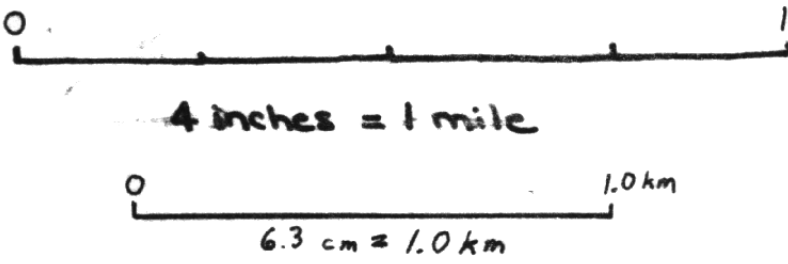 0 1
4 inches = 1 mile
0 1.0 km
6.3 cm = 1.0 km